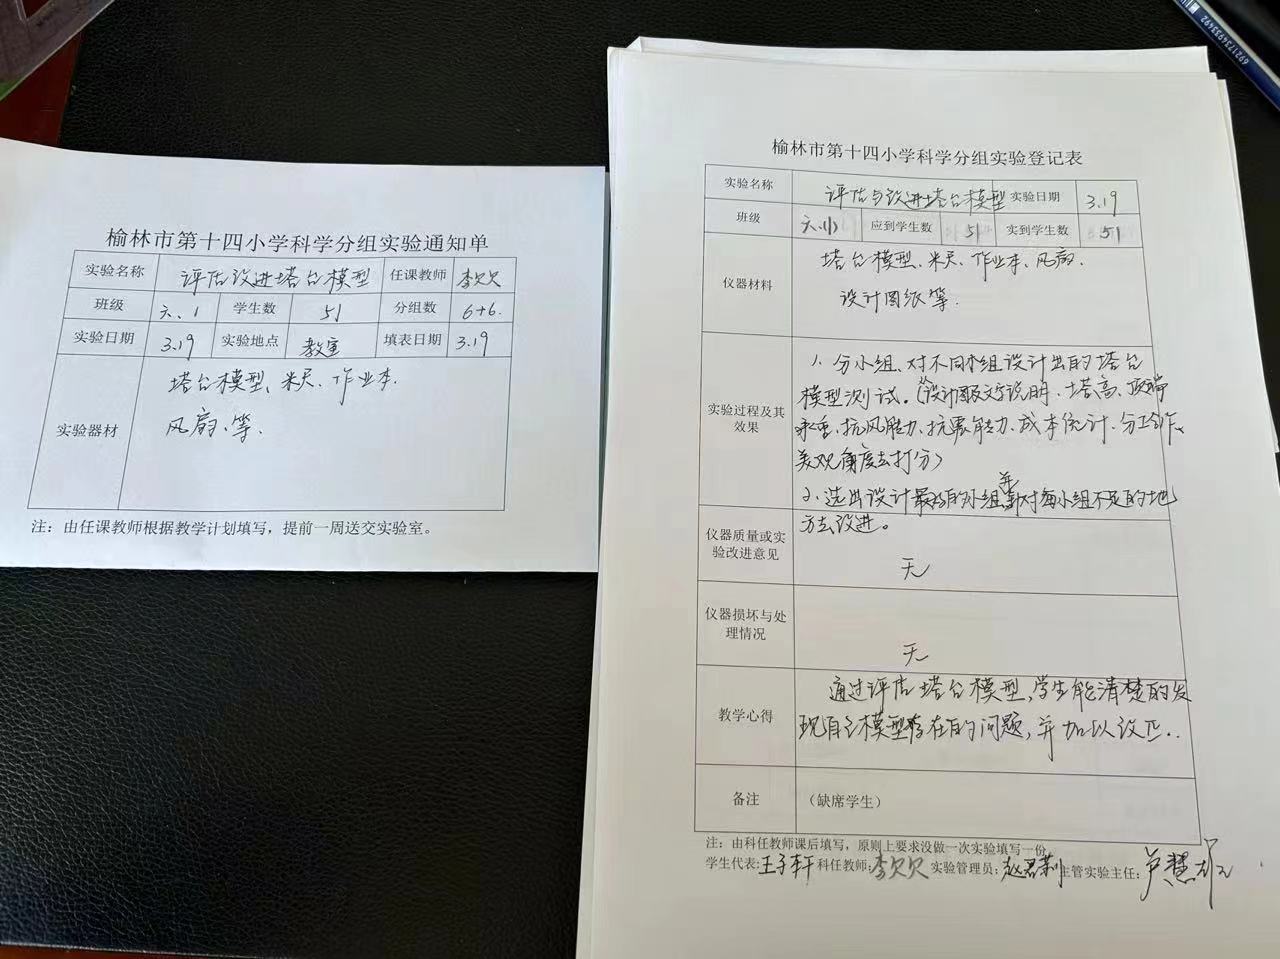 6921734933492
榆林市第十四小学科学分组实验通知单
实验名称 评估改进塔台模型 任课教师 李欠欠
班级 六.1 学生数 51 分组数 6+6.
实验日期 3.19 实验地点 教室 填表日期 3.19
实验器材
塔台模型、米尺、作业本.
风扇.等.
注：由任课教师根据教学计划填写，提前一周送交实验室。
榆林市第十四小学科学分组实验登记表
实验名称 评估与改进塔台模型 实验日期 3.19
班级 六.(1) 应到学生数 51 实到学生数 51
仪器材料
塔台模型、米尺、作业本、风扇.
设计图纸等.
实验过程及其效果
1. 分小组、对不同小组设计出的塔台
模型测试。(从设计图及文字说明、塔高、顶端
承重、抗风能力、抗震能力、成本统计、分工合作、
美观角度去打分)
2. 选出设计最好的小组,并针对每小组不足的地
方去改进。
仪器质量或实验改进意见
无
仪器损坏与处理情况
无
教学心得
通过评估塔台模型,学生能清楚的发
现自己模型存在的问题,并加以改正..
备注 （缺席学生）
注：由科任教师课后填写，原则上要求没做一次实验填写一份。
学生代表:王子轩 科任教师:李欠欠 实验管理员: 主管实验主任: